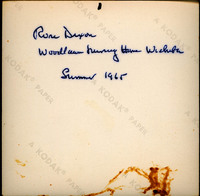 Rose Dixon
Woodlawn Nursing Home Wichita
Summer 1965
A KODAK PAPER
A KODAK PAPER
A KODAK PAPER